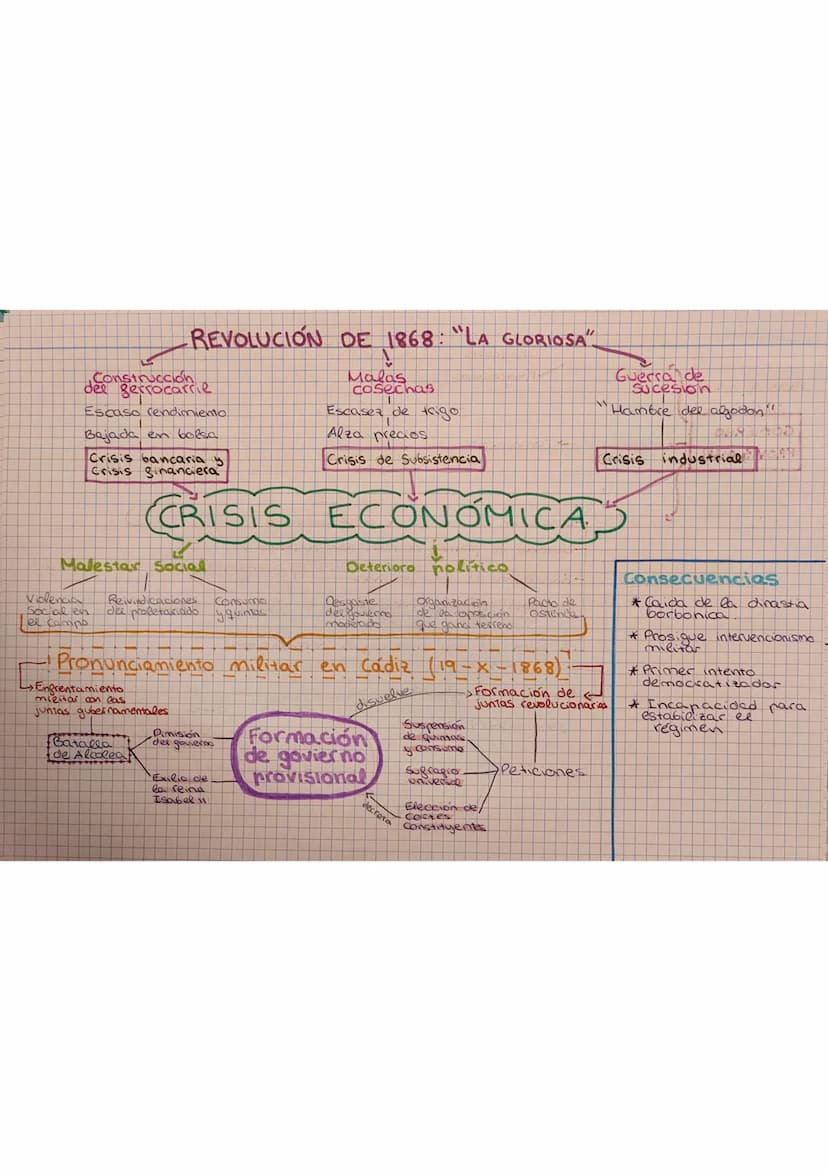 REVOLUCIÓN DE 1868: "LA GLORIOSA"
Construcción
del ferrocarril
Escaso rendimiento
Bajada en bolsa
Crisis bancaria y
Crisis financiera
Malas
cosechas
Escasez de trigo
Alza precios
Crisis de Subsistencia
Guerra de
sucesión
"Hambre del algodón"
Crisis industrial
CRISIS ECONÓMICA
Malestar Social
Violencia
Social en
el campo
Reivindicaciones
del proletariado
Consumo
y quintas
Deterioro político
Desgaste
del governo
moderado
Organización
de la oposición
que gana terreno
Pacto de
Ostende
Pronunciamiento militar en Cádiz (19-X-1868)
Enfrentamiento
militar con las
juntas gubernamentales
Batalla
de Alcolea
Dimisión
del governo
Exilio de
la reina
Isabel II
Formación
de govierno
provisional
disuelve
decreta
Formación de
juntas revolucionarias
Suspensión
de quintas
y consumo
Sufragio
universal
Elección de
Cortes
constituyents
Peticiones
Consecuencias
* Caída de la dinastía
borbónica.
* Prosigue intervencionismo
militar
* Primer intento
democratizador
* Incapacidad para
estabilizar el
régimen